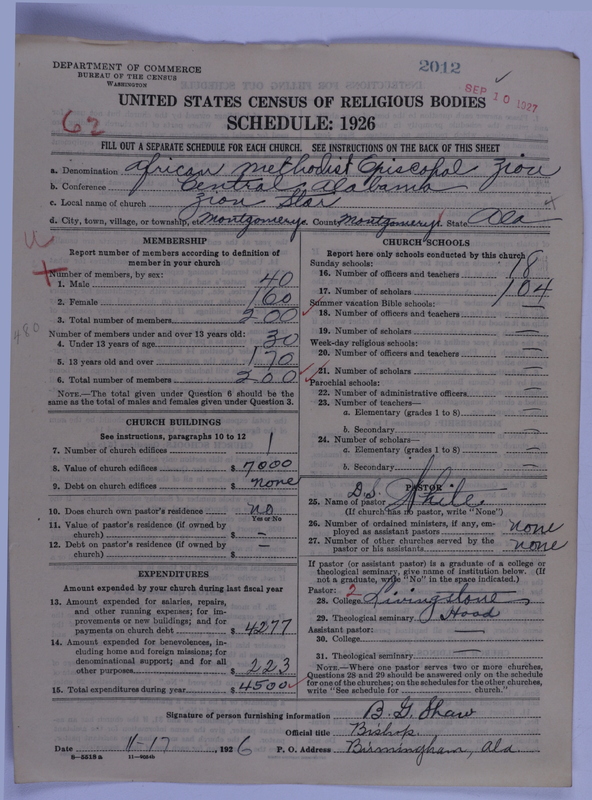 DEPARTMENT OF COMMERCE
BUREAU OF THE CENSUS
WASHINGTON
2012
SEP 10 1927
UNITED STATES CENSUS OF RELIGIOUS BODIES
SCHEDULE: 1926
62
FILL OUT A SEPARATE SCHEDULE FOR EACH CHURCH. SEE INSTRUCTIONS ON THE BACK OF THIS SHEET
a. Denomination African Methodist Episcopal Zion
b. Conference Central Alabama
c. Local name of church Zion Star
d. City, town, village, or township, etc. Montgomery County Montgomery State Ala
MEMBERSHIP
Report number of members according to definition of
member in your church
Number of members, by sex:
1. Male 40
2. Female 160
3. Total number of members 200
Number of members under and over 13 years old:
480
4. Under 13 years of age 30
5. 13 years old and over 170
6. Total number of members 200
NOTE.—The total given under Question 6 should be
same as the total of males and females given under Question 3.
CHURCH BUILDINGS
See instructions, paragraphs 10 to 12
7. Number of church edifices 1
8. Value of church edifices $ 7000
9. Debt on church edifices $ none
10. Does church own pastor's residence no
Yes or No
11. Value of pastor's residence (if owned by
church) $ —
12. Debt on pastor's residence (if owned by
church) $ —
EXPENDITURES
Amount expended by your church during last fiscal year
13. Amount expended for salaries, repairs,
and other running expenses; for im-
provements or new buildings; and for
payments on church debt $ 4277
14. Amount expended for benevolences, in-
cluding home and foreign missions; for
denominational support; and for all
other purposes $ 223
15. Total expenditures during year $ 4500
CHURCH SCHOOLS
Report here only schools conducted by this church
Sunday schools:
16. Number of officers and teachers 18
17. Number of scholars 104
Summer vacation Bible schools:
18. Number of officers and teachers —
19. Number of scholars —
Week-day religious schools:
20. Number of officers and teachers —
21. Number of scholars —
Parochial schools:
22. Number of administrative officers —
23. Number of teachers—
a. Elementary (grades 1 to 8) —
b. Secondary —
24. Number of scholars—
a. Elementary (grades 1 to 8) —
b. Secondary —
PASTOR
25. Name of pastor D. S.
(If church has no pastor, write "None")
26. Number of ordained ministers, if any, em-
ployed as assistant pastors none
27. Number of other churches served by the
pastor or his assistants none
If pastor (or assistant pastor) is a graduate of a college or
theological seminary, give name of institution below. (If
not a graduate, write "No" in the space indicated.)
Pastor: 2
28. College Livingstone
29. Theological seminary Hood
Assistant pastor:
30. College —
31. Theological seminary —
NOTE.—Where one pastor serves two or more churches,
Questions 28 and 29 should be answered only on the schedule
for one of the churches; on the schedules for the other churches,
write "See schedule for church."
Signature of person furnishing information B. G. Shaw
Official title Bishop
Date 11-17, 1926 P. O. Address Birmingham, Ala.
8—5518 a 11—8084b